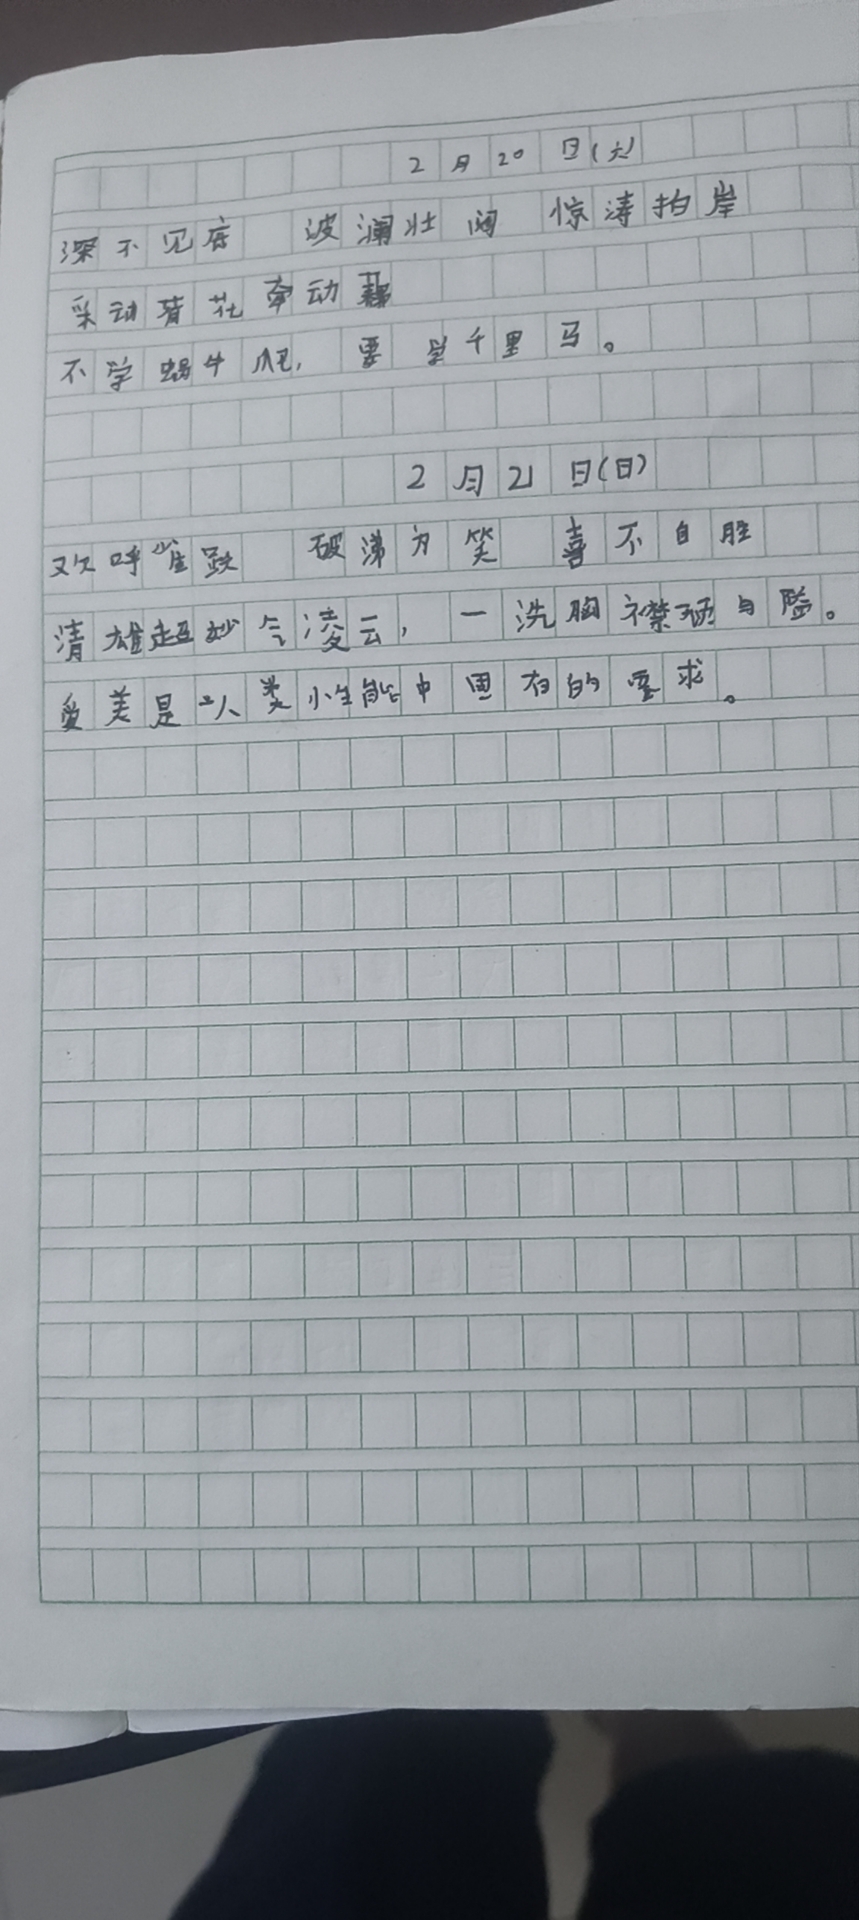 2月20日(六)
深不见底 波澜壮阔 惊涛拍岸
采动荷花牵动藕
不学蜗牛爬,要当千里马。
2月21日(日)
欢呼雀跃 破涕为笑 喜不自胜
清雄超妙气凌云,一洗胸襟与。
爱美是人类性能中固有的要求。